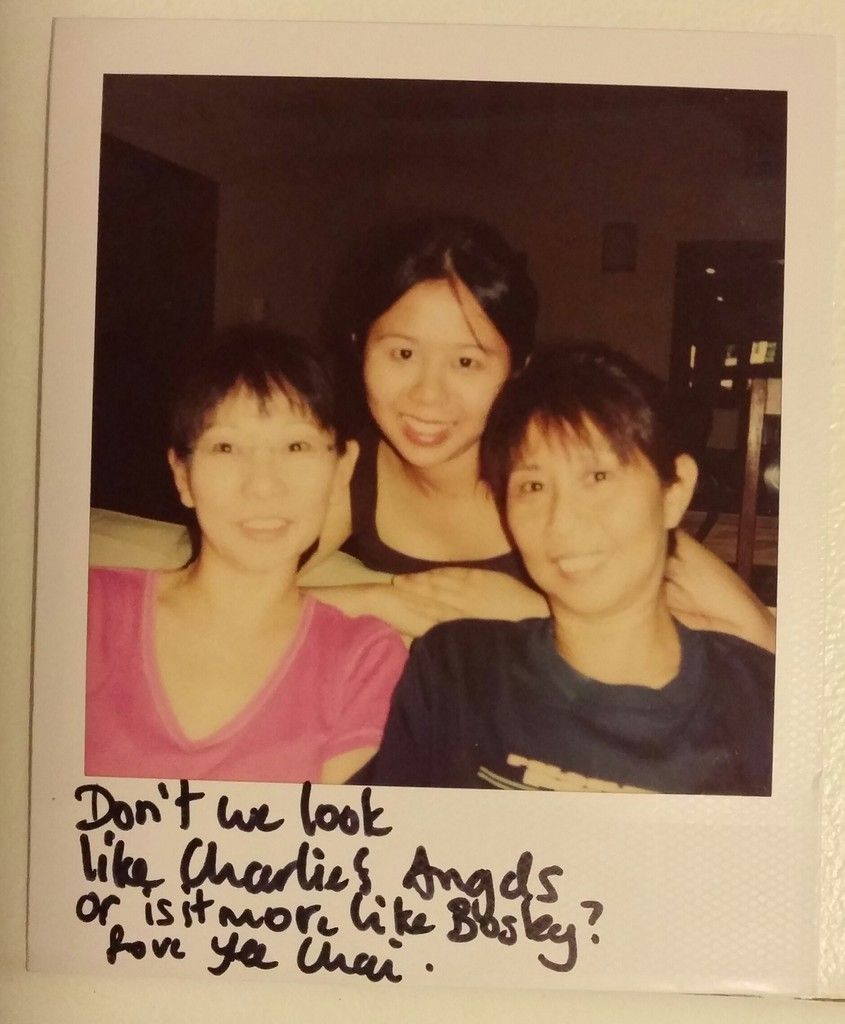 Don't we look
like Charlie's Angels
or is it more like Bosley?
Love Yee Chai.